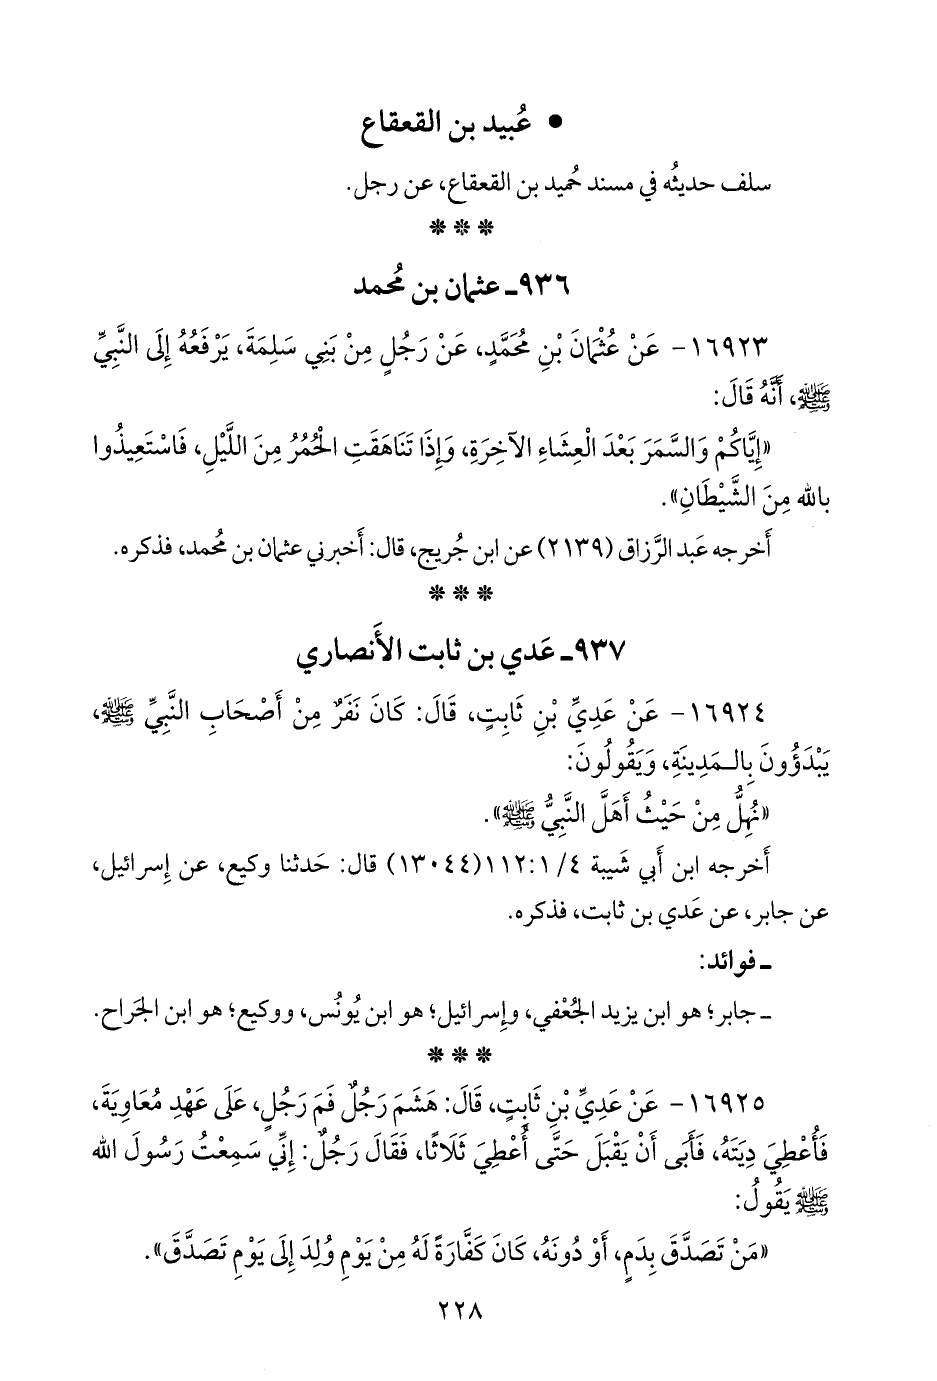 • عُبيد بن القعقاع
سلف حديثُه في مسند حُميد بن القعقاع، عن رجل.
* * *
٩٣٦ـ عثمان بن مُحمد
١٦٩٢٣- عَنْ عُثْمَانَ بْنِ مُحَمَّدٍ، عَنْ رَجُلٍ مِنْ بَنِي سَلِمَةَ، يَرْفَعُهُ إِلَى النَّبِيِّ
ﷺ، أَنَّهُ قَالَ:
«إِيَّاكُمْ وَالسَّمَرَ بَعْدَ الْعِشَاءِ الآخِرَةِ، وَإِذَا تَنَاهَقَتِ الْحُمُرُ مِنَ اللَّيْلِ، فَاسْتَعِيذُوا
بِالله مِنَ الشَّيْطَانِ».
أَخرجه عَبد الرَّزاق (٢١٣٩) عن ابن جُريج، قال: أَخبرني عثمان بن مُحمد، فذكره.
* * *
٩٣٧ـ عَدي بن ثابت الأَنصاري
١٦٩٢٤- عَنْ عَدِيِّ بْنِ ثَابِتٍ، قَالَ: كَانَ نَفَرٌ مِنْ أَصْحَابِ النَّبِيِّ ﷺ،
يَبْدَؤُونَ بِالـمَدِينَةِ، وَيَقُولُونَ:
«نُهِلُّ مِنْ حَيْثُ أَهَلَّ النَّبِيُّ ﷺ».
أَخرجه ابن أَبي شَيبة ٤/ ١١٢:١(١٣٠٤٤) قال: حَدثنا وكيع، عن إِسرائيل،
عن جابر، عن عَدي بن ثابت، فذكره.
ـ فوائد:
ـ جابر؛ هو ابن يزيد الجُعْفي، وإِسرائيل؛ هو ابن يُونُس، ووكيع؛ هو ابن الجَراح.
* * *
١٦٩٢٥- عَنْ عَدِيِّ بْنِ ثَابِتٍ، قَالَ: هَشَمَ رَجُلٌ فَمَ رَجُلٍ، عَلَى عَهْدِ مُعَاوِيَةَ،
فَأُعْطِيَ دِيَتَهُ، فَأَبَى أَنْ يَقْبَلَ حَتَّى أُعْطِيَ ثَلَاثًا، فَقَالَ رَجُلٌ: إِنِّي سَمِعْتُ رَسُولَ الله
ﷺ يَقُولُ:
«مَنْ تَصَدَّقَ بِدَمٍ، أَوْ دُونَهُ، كَانَ كَفَّارَةً لَهُ مِنْ يَوْمِ وُلِدَ إِلَى يَوْمِ تَصَدَّقَ».
٢٢٨